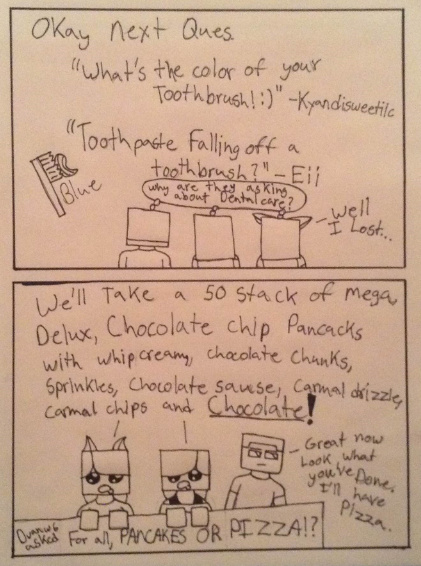 Okay next Ques.
"What's the color of your
Toothbrush! :)" -Kyandisweetilc
"Toothpaste Falling off a
toothbrush?" - Eii
Blue
why are they asking
about Dental care?
- Well
I Lost...
We'll Take a 50 Stack of Mega,
Delux, Chocolate chip Pancacks
with whipcreamy, chocolate chunks,
Sprinkles, Chocolate sauuse, Carmal drizzle,
Carmal chips and Chocolate!
- Great now
Look what
you've Done.
I'll have
Pizza.
asked
For all, PANCAKES OR PIZZA!?